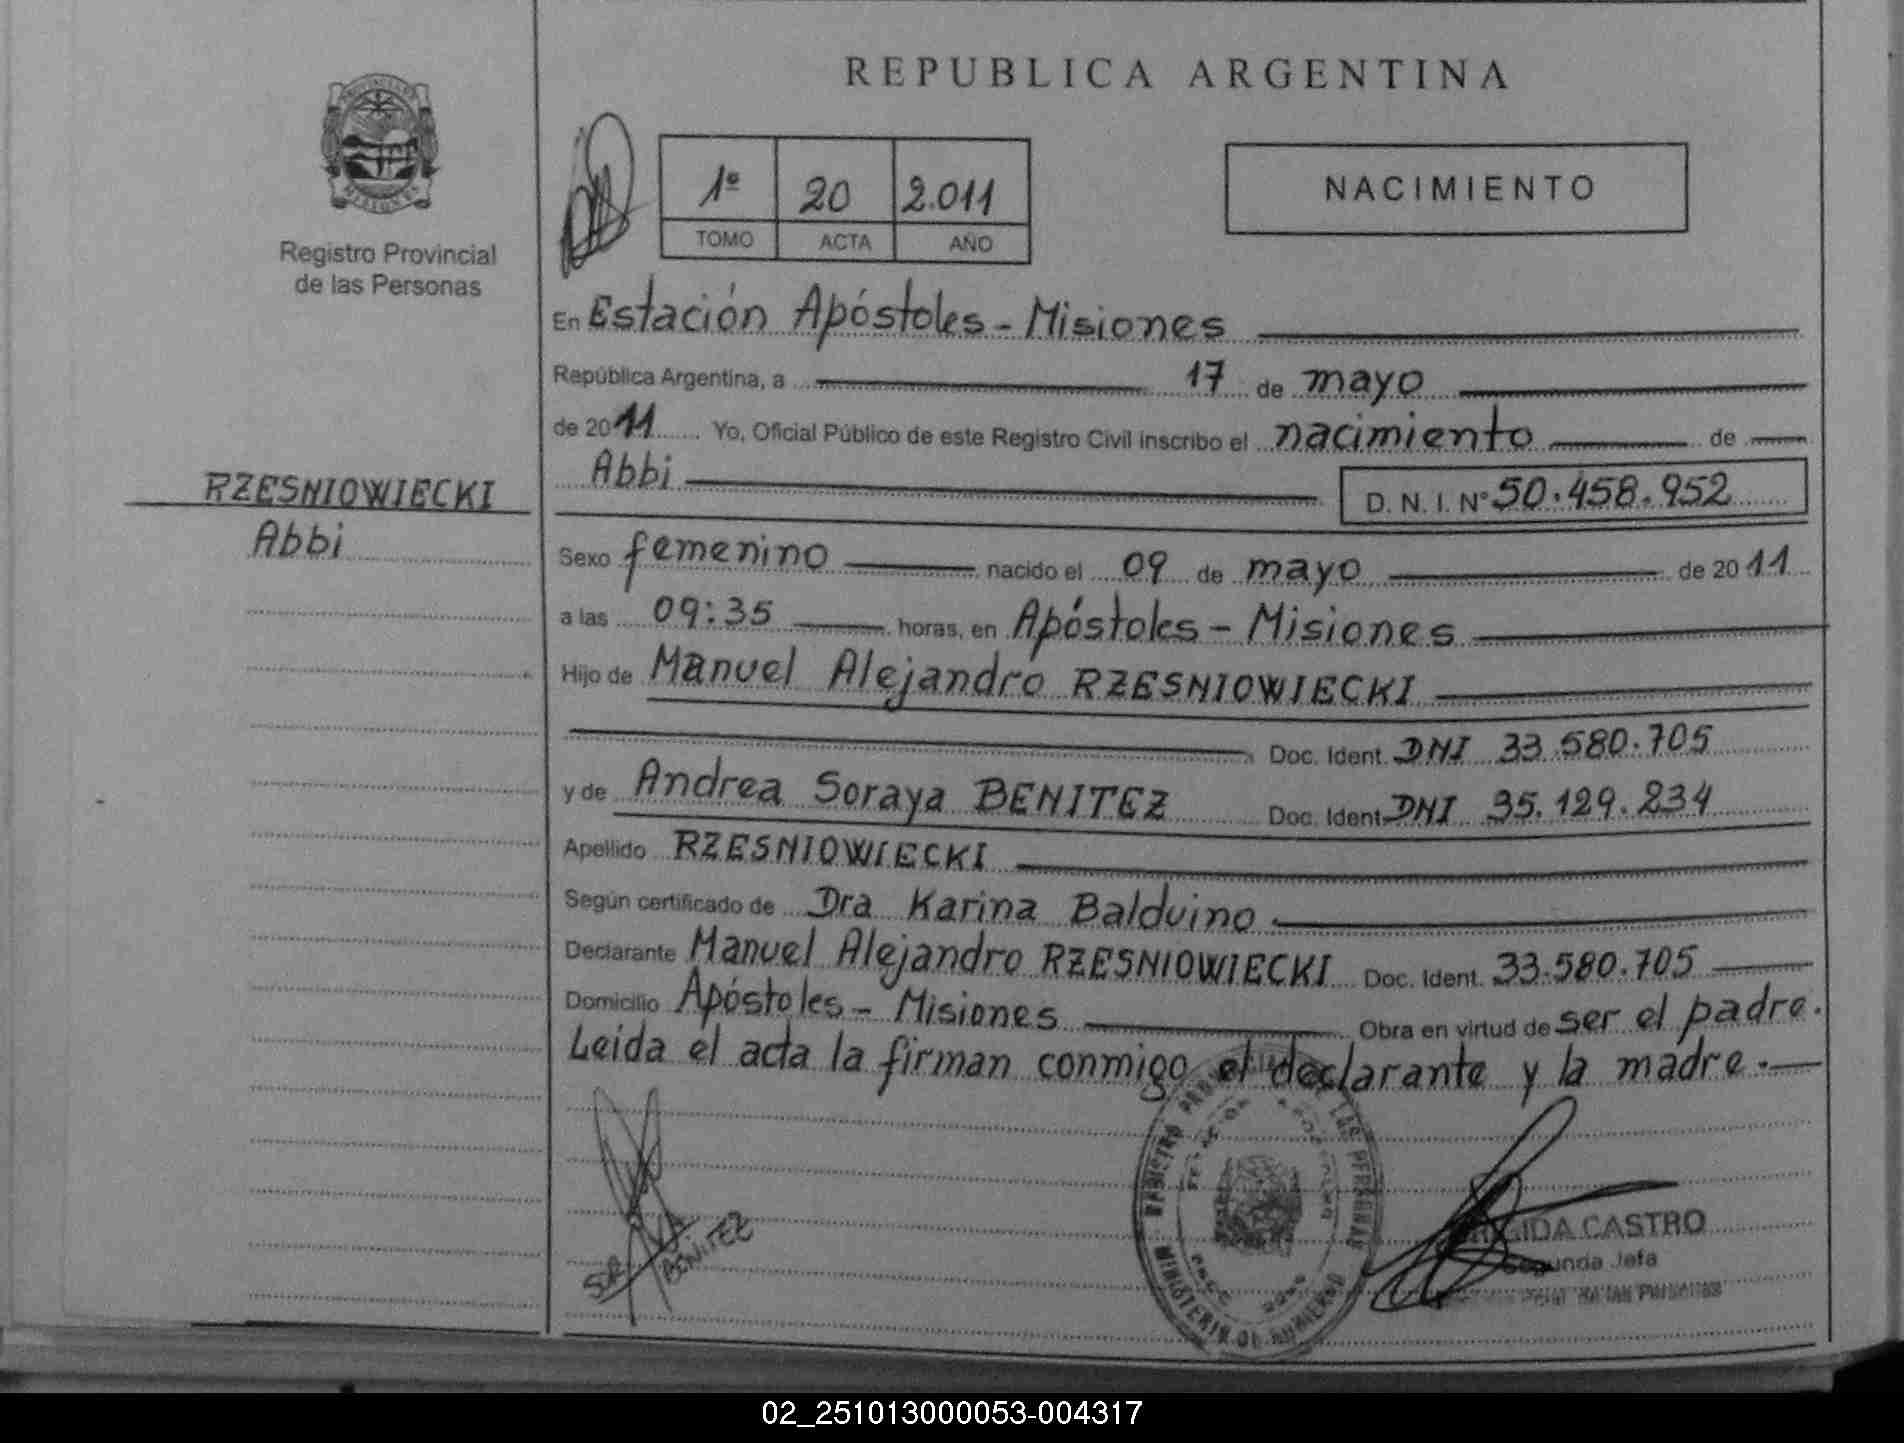 REPUBLICA ARGENTINA
Registro Provincial
de las Personas
1º 20 2.011
TOMO ACTA AÑO
NACIMIENTO
En Estación Apóstoles - Misiones
República Argentina, a 17 de mayo
de 2011 Yo, Oficial Público de este Registro Civil inscribo el nacimiento de
Abbi D. N. I. Nº 50.458.952
RZESNIOWIECKI
Abbi
Sexo femenino nacido el 09 de mayo de 2011
a las 09:35 horas, en Apóstoles - Misiones
Hijo de Manuel Alejandro RZESNIOWIECKI
Doc. Ident. DNI 33.580.705
y de Andrea Soraya BENITEZ Doc. Ident. DNI 35.129.234
Apellido RZESNIOWIECKI
Según certificado de Dra Karina Balduino
Declarante Manuel Alejandro RZESNIOWIECKI Doc. Ident. 33.580.705
Domicilio Apóstoles - Misiones Obra en virtud de ser el padre.
Leida el acta la firman conmigo el declarante y la madre.
BENITEZ
CASTRO
Segunda Jefa
de las Personas
MINISTERIO DE GOBIERNO
02_251013000053-004317